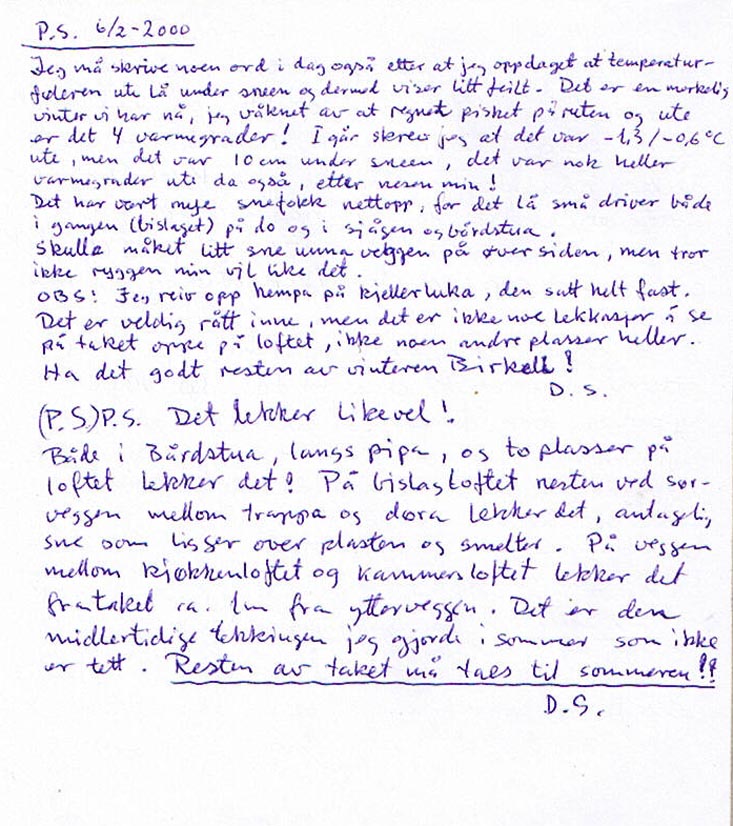 P.S. 6/2-2000
Jeg må skrive noen ord i dag også etter at jeg oppdaget at temperatur-
føleren ute lå under sneen og dermed viser litt feilt. Det er en merkelig
vinter vi har nå, jeg våknet av at regnet pisket på ruten og ute
er det 4 varmegrader! I går skrev jeg at det var -1,3/-0,6°C
ute, men det var 10 cm under sneen, det var nok heller
varmegrader ute da også, etter nesen min!
Det har vært mye snefokk nettopp, for det lå små driver både
i gangen (bislaget) på do og i sjågen og bårdstua.
Skulle måket litt sne unna veggen på øver siden, men tror
ikke ryggen min vil like det.
OBS! Jeg reiv opp hempa på kjellerluka, den satt helt fast.
Det er veldig rått inne, men det er ikke noe lekkasjer å se
på taket oppe på loftet, ikke noen andre plasser heller.
Ha det godt resten av vinteren Birkeli!
D.S.
(P.S)P.S. Det lekker likevel!
Både i Bårdstua, langs pipa, og to plasser på
loftet lekker det! På bislagloftet nesten ved sør-
veggen mellom trappa og døra lekker det, antagelig
sne som ligger over plasten og smelter. På veggen
mellom kjøkkenloftet og kammersloftet lekker det
fra taket ca. 1m fra ytterveggen. Det er den
midlertidige tekkingen jeg gjorde i sommer som ikke
er tett. Resten av taket må taes til sommeren!!
D.S.